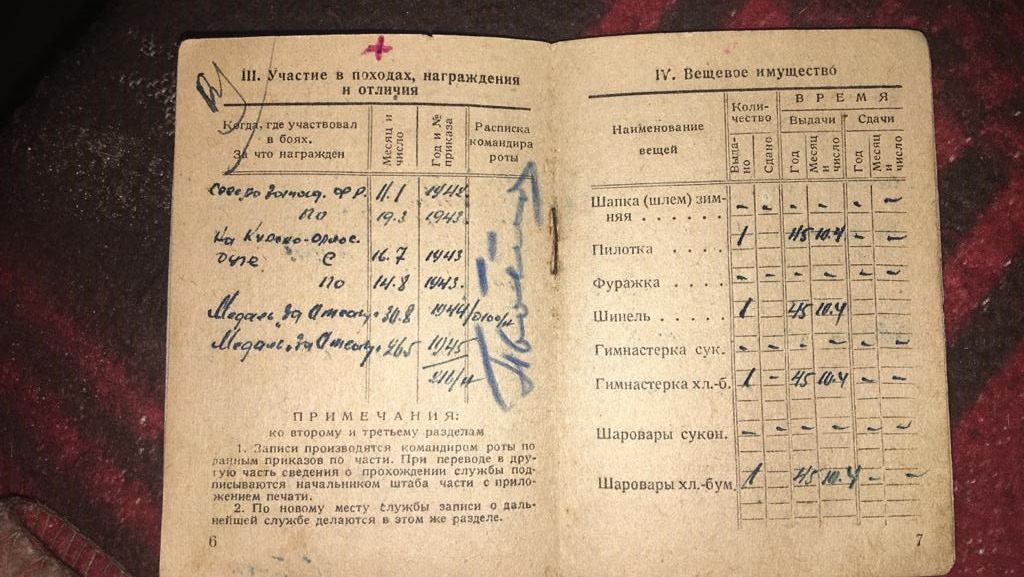 III. Участие в походах, награждения
и отличия
Когда, где участвовал
в боях.
За что награжден
Месяц и
число
Год и №
приказа
Расписка
командира
роты
11.1 1942
По 19.3 1943.
На Курско-
Дуге С 16.7 1943
По 14.8 1943.
Медаль "За 30.8 1944/
Медаль "За 26.5 1945
216/н
ПРИМЕЧАНИЯ:
ко второму и третьему разделам
1. Записи производятся командиром роты по
данным приказов по части. При переводе в дру-
гую часть сведения о прохождении службы под-
писываются начальником штаба части с прило-
жением печати.
2. По новому месту службы записи о даль-
нейшей службе делаются в этом же разделе.
6
IV. Вещевое имущество
Наименование
вещей
Коли-
чество
ВРЕМЯ
Выдачи Сдачи
Выда-
но
Сдано
Год
Месяц
и
число
Год
Месяц
и
число
Шапка (шлем) зим-
няя . . . . . . - - - - - -
Пилотка . . . . 1 - 45 10.4 - -
Фуражка . . . . - - - - - -
Шинель . . . . 1 45 10.4
Гимнастерка сук.
Гимнастерка хл.-б. 1 - 45 10.4 - -
Шаровары сукон. - - - - - -
Шаровары хл.-бум. 1 45 10.4 - -
7